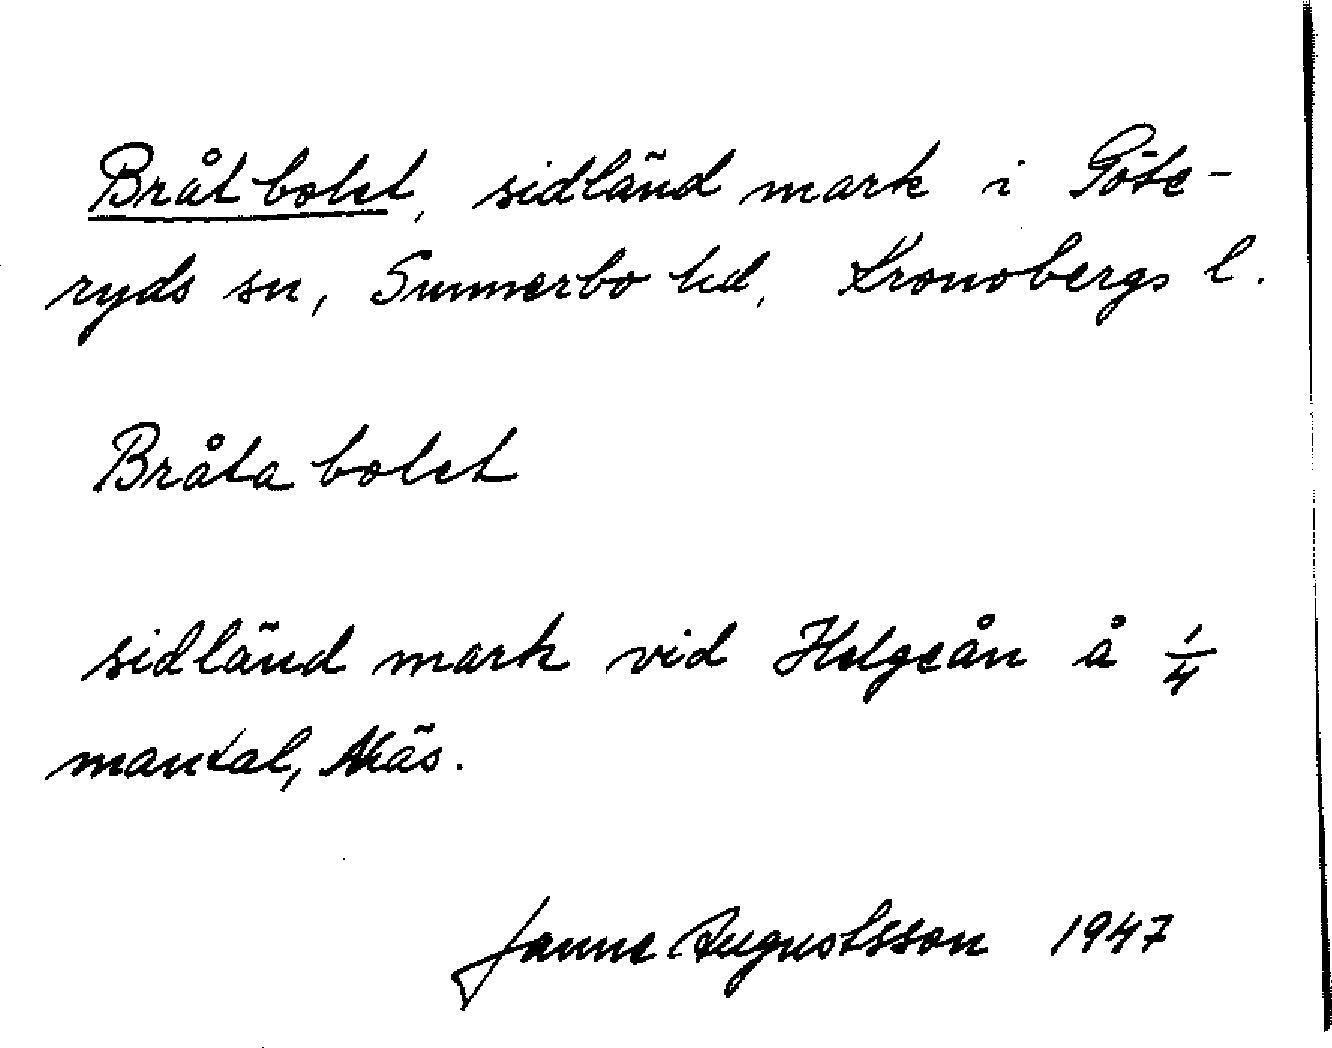 Bråtbolet, sidländ mark i Göte-
ryds sn, Sunnerbo hd, Kronobergs l.
Bråta bolet
sidländ mark vid Helgeån å 1/4
mantal, Näs.
Janne Augustsson 1947